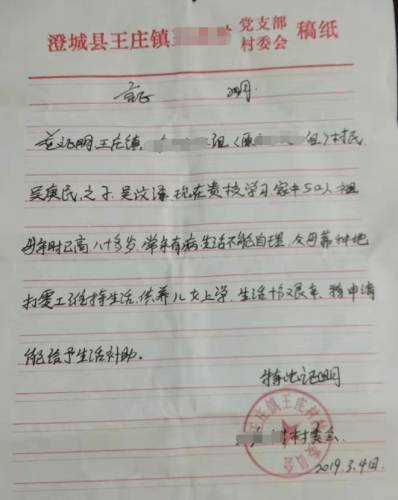 澄城县王庄镇 党支部 村委会 稿纸
证 明
兹证明王庄镇 组（原 组）村民
吴庚民之子吴汶泽现在贵校学习家中5口人祖
母年时已高八十多岁常年有病生活不能自理父母靠种地
打零工维持生活供养儿女上学生活十分艰辛特申请
能给予生活补助。
特此证明
村村委会
2019.3.4日
王庄镇王庄村 委员会